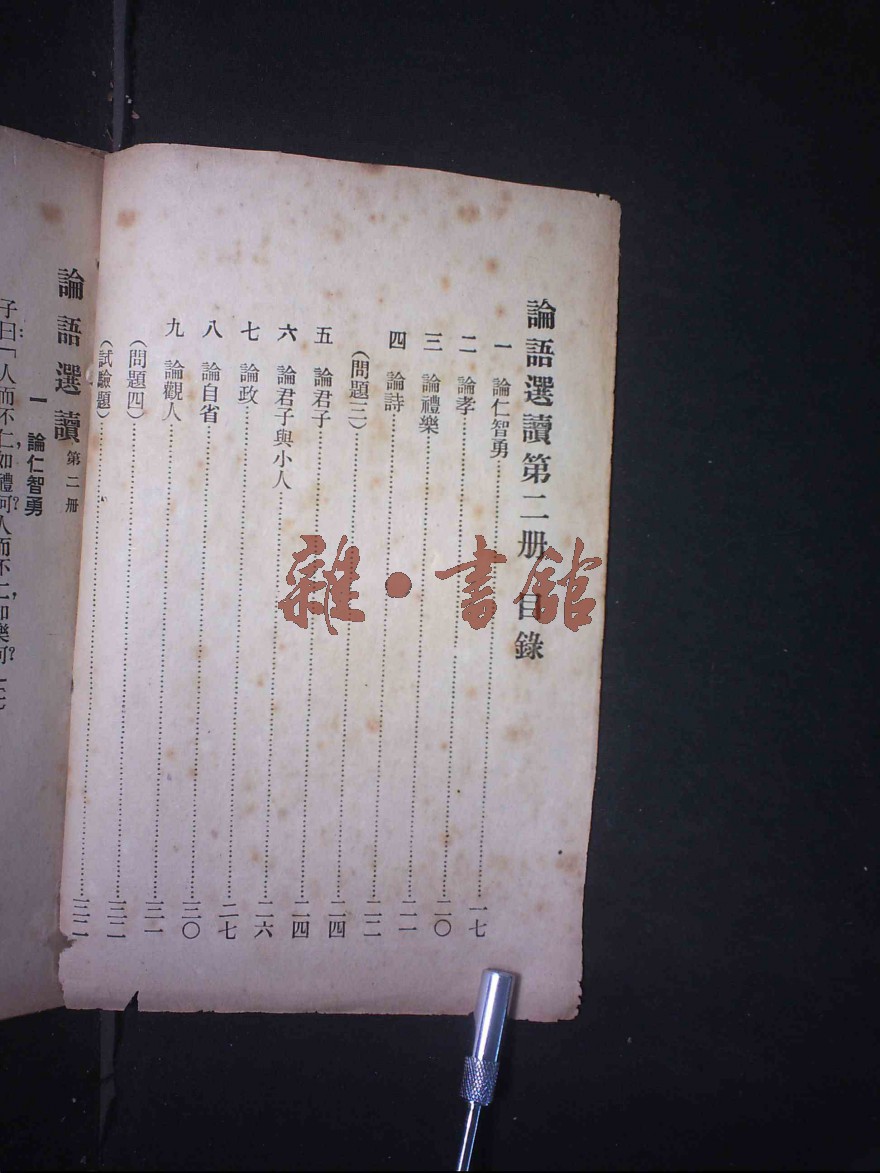 論語選讀第二册 目錄
一 論仁智勇……一七
二 論孝……二〇
三 論禮樂……二一
四 論詩……二二
（問題三）……二四
五 論君子……二四
六 論君子與小人……二六
七 論政……二七
八 論自省……三〇
九 論觀人……三一
（問題四）……三二
（試驗題）……三二
論語選讀 第二册
一 論仁智勇
子曰：「人而不仁，如禮何？人而不仁，如樂何？」
雜·書館